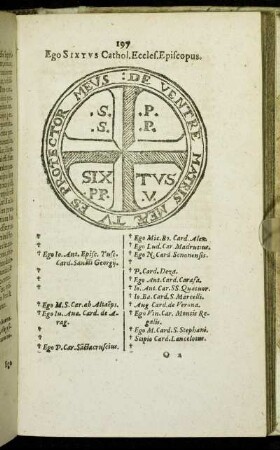 197
Ego SIXTVS Cathol. Eccles. Episcopus.
: DE VENTRE MATRIS MEÆ TV ES PROTECTOR MEVS
.S. .P.
.S. .P.
SIX TVS
PP. V.
†
†
† Ego Io. Ant. Episc. Tusc.
Card. Sancti Georgij.
†
†
†
† Ego M. S. Car. ab Altaëps.
† Ego In. Aua. Card. de A-
rag.
†
† Ego P. Car. Sanctacrucius.
† Ego Mic. Bo. Card. Alex.
† Ego Lud. Car. Madrutius.
† Ego N. Card. Senonensis.
†
† P. Card. Deza.
† Ego Ant. Card. Carafa.
† Io. Ant. Car. SS. Quatuor.
† Io. Ba. Card. S. Marcelli.
† Aug. Card. de Verona.
† Ego Vin. Car. Montis Re-
galis.
† Ego M. Card. S. Stephani.
† Scipio Card. Lancelottus.
†
O 2